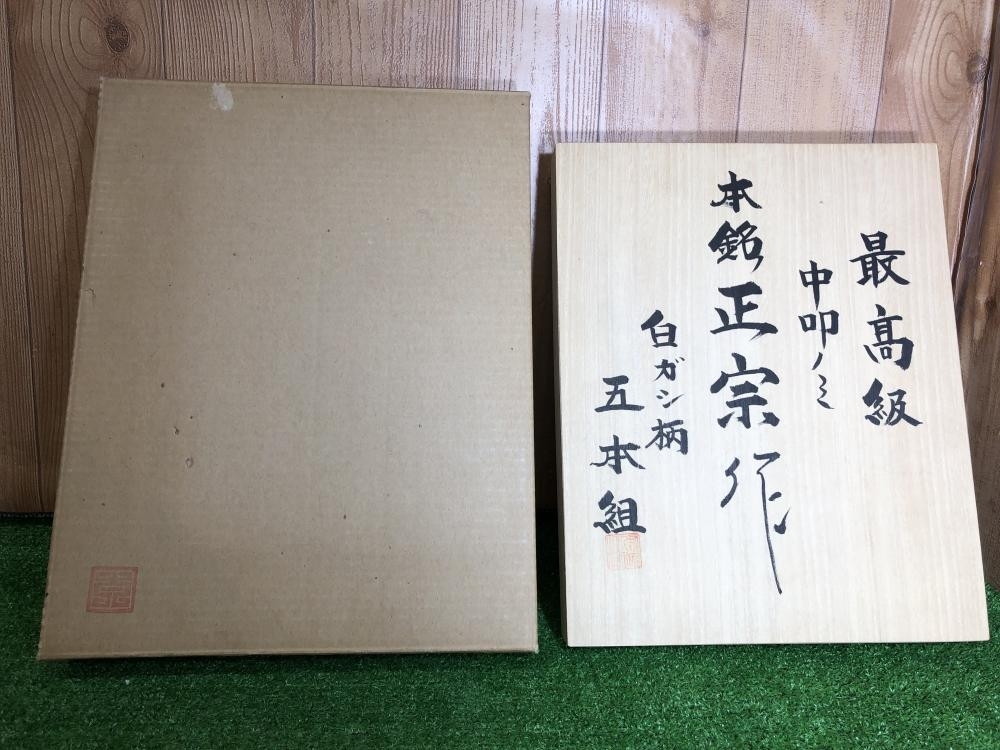 最高級
中叩ノミ
本銘正宗作
白ガシ柄
五本組